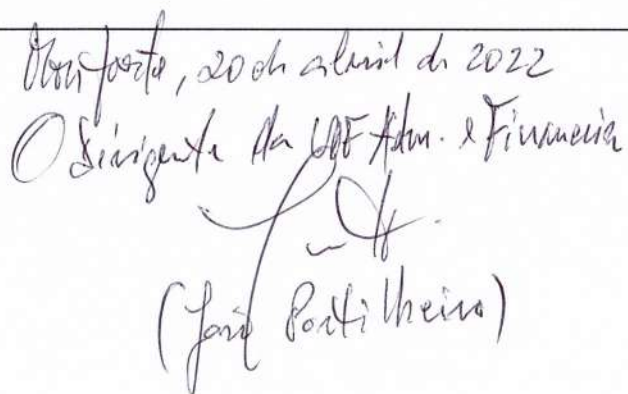 Monforte, 20 de abril de 2022
O Dirigente da UOF Adm. e Financeira
(José Portilheiro)